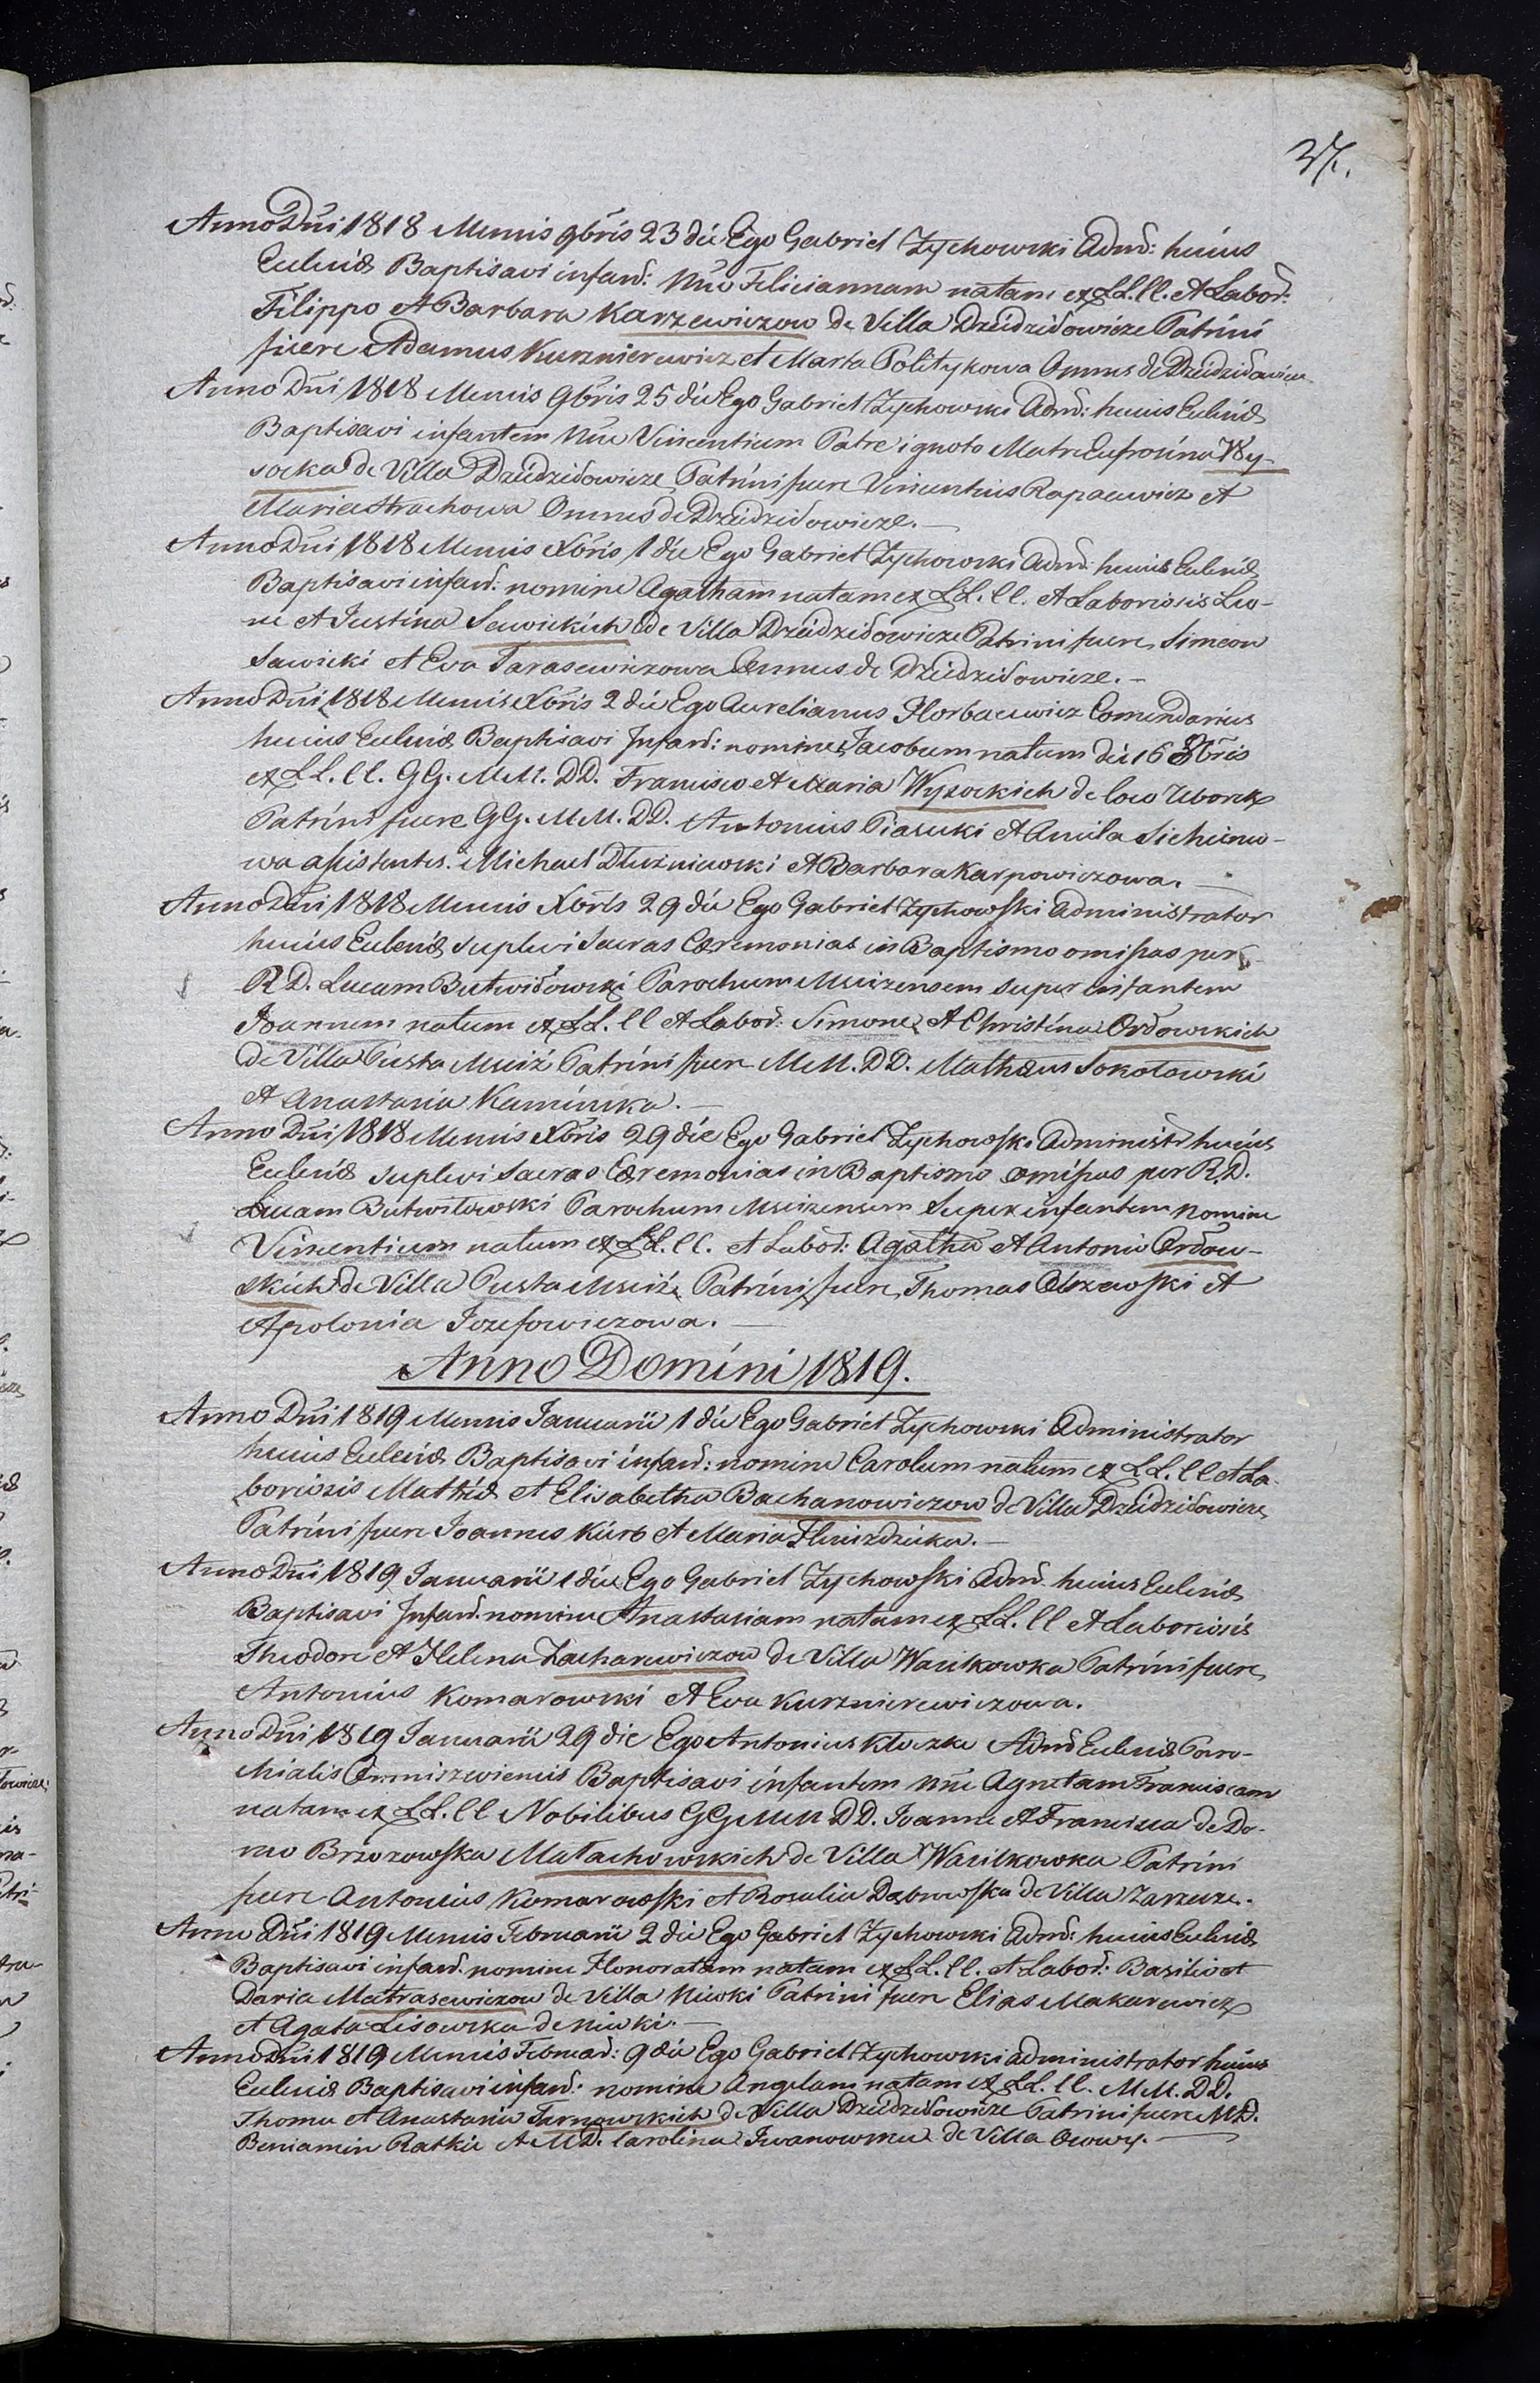 37.
Anno Dni 1818 Mensis 9bris 23 die Ego Gabriel Zychowski Admr: huius
Eccleniæ Baptisavi infant: Nne Feliciannam natam ex LL. CC. et Labor:
Filippo et Barbara Karzewiczow de Villa Dziedziłowicze Patrini
fuere Adamus Kurznierewicz et Marta Politykowa Omnes de Dziedziłowicze
Anno Dni 1818 Mensis 9bris 25 die Ego Gabriel Zychowski Admr: huius Eccleniæ
Baptisavi infantem Nne Vincentium Patre ignoto Matre Eufrosina Wy-
socka de Villa Dziedziłowicze, Patrini fuere Vincentius Rapacewicz et
Maria Strachowa Omnes de Dziedziłowicze.—
Anno Dni 1818 Mensis Xbris 1 die Ego Gabriel Zychowski Admr: huius Eccleniæ
Baptisavi infant: nomine Agatham natam ex LL. CC. et Laboriosis Leo-
ne et Justina Sawickich de Villa Dziedziłowicze Patrini fuere Simeon
Sawicki et Eva Tarasewiczowa Omnes de Dziedziłowicze.—
Anno Dni 1818 Mensis Xbris 2 die Ego Aurelianus Horbacewicz Comendarius
huius Eccleniæ Baptisavi Infant: nomine Jacobum natum die 16 8bris
ex LL. CC. GG. MM. DD. Francisco et Maria Wysockich de loco Uborek
Patrini fuere GG. MM. DD. Antonius Piasecki et Aniela Sicheniu-
wa assistentes. Michael Dłużniewski et Barbara Karpowiczowa.—
Anno Dni 1818 Mensis Xbris 29 die Ego Gabriel Zychowski Administrator
huius Eccleniæ suplevi Sacras Cæremonias in Baptismo omissas per
R. D. Lucam Butwiłowski Parochum Mscizensem super infantem
Joannem natum ex LL. CC et Labor: Simone et Christina Orłowskich
de Villa Pusta Msciż Patrini fuere MM. DD. Mathæus Sokołowski
et Anastasia Kaminska.—
Anno Dni 1818 Mensis Xbris 29 die Ego Gabriel Zychowski Administr huius
Eccleniæ suplevi Sacras Cæremonias in Baptismo omissas per R. D.
Lucam Butwiłowski Parochum Mscizensem Super infantem nomine
Vincentium natum ex LL. CC. et Labor: Agatha et Antonio Orłow-
skich de Villa Pusta Msciż, Patrini fuere Thomas Olszewski et
Apolonia Jozefowiczowa.—
Anno Domini 1819.
Anno Dni 1819 Mensis Januarii 1 die Ego Gabriel Zychowski Administrator
huius Eccleniæ Baptisavi infant: nomine Carolum natum ex LL. CC et La-
boriosis Mathiæ et Elisabetha Bachanowiczow de Villa Dziedziłowicze,
Patrini fuere Joannes Kurs et Maria Hwizdzicka.—
Anno Dni 1819 Januarii 1 die Ego Gabriel Zychowski Admr. huius Eccleniæ
Baptisavi Infant. nomine Anastasiam natam ex LL. CC et Laboriosis
Theodore et Helena Zacharewiczow de Villa Wasilkowka Patrini fuere
Antonius Komarowski et Eva Kurznierewiczowa.
Anno Dni 1819 Januarii 29 die Ego Antonius Kłoczko Admr Eccleniæ Paro-
chialis Omniszewiensis Baptisavi infantem Nne Agnetam Franciscam
natam ex LL. CC Nobilibus GG MM DD. Joanne et Francisca de Do-
mo Brzozowska Małachowskich de Villa Wasilkowka Patrini
fuere Antonius Komarowski et Rosalia Dąbrowska de Villa Zarzecze.
Anno Dni 1819 Mensis Februarii 2 die Ego Gabriel Zychowski Admr: huius Eccleniæ
Baptisavi infant. nomine Honoratam natam ex LL. CC. et Labor: Basilio et
Daria Matrasewiczow de Villa Niwki Patrini fuere Elias Makarewicz
et Agata Lisowska de Niwki.—
Anno Dni 1819 Mensis Februar: 9 die Ego Gabriel Zychowski administrator huius
Eccleniæ Baptisavi infant: nomine Angelam natam ex LL. CC. MM. DD.
Thoma et Anastasia Tarnowskich de Villa Dziedziłowicze Patrini fuere MD.
Beniamin Ratkie et MD. Carolina Iwanowska de Villa Osowy.—